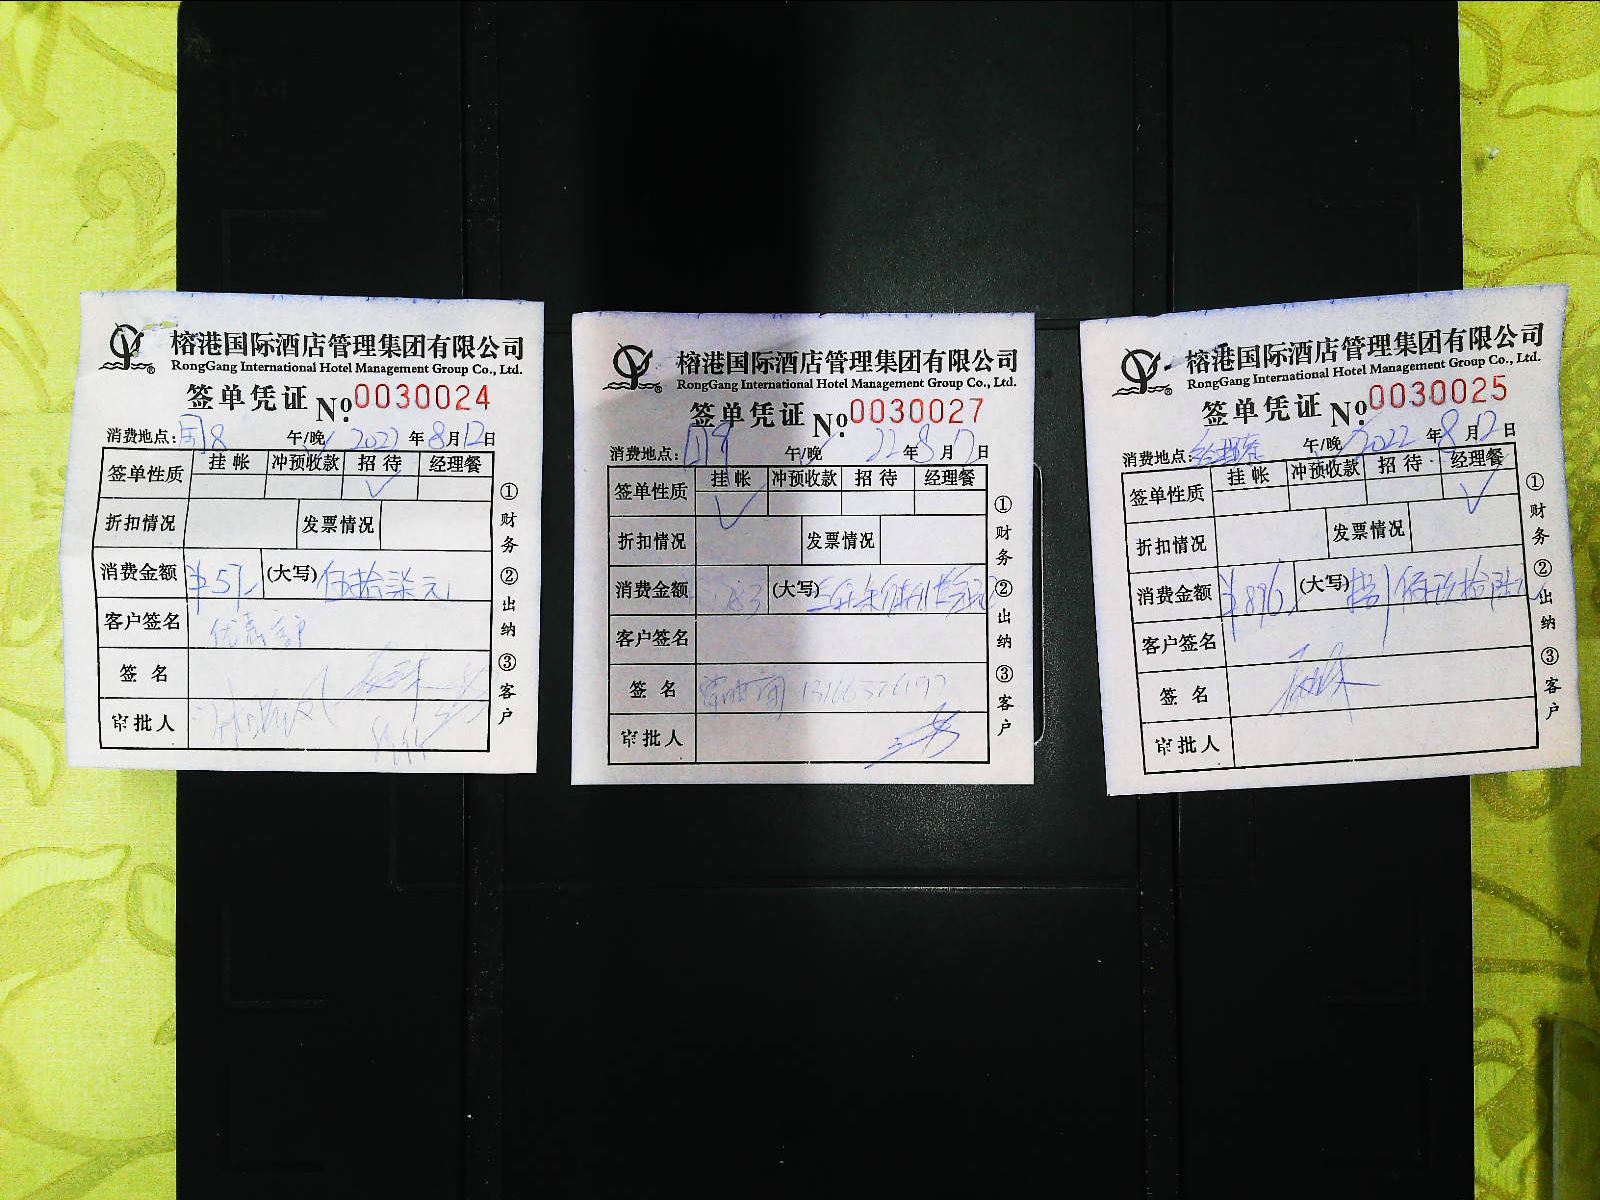 榕港国际酒店管理集团有限公司
RongGang International Hotel Management Group Co., Ltd.
签单凭证 No. 0030024
消费地点: 午/晚 2022 年 8 月 12 日
签单性质 挂帐 冲预收款 招待 经理餐
✓
折扣情况 发票情况
消费金额 ¥57 (大写) 伍拾柒元
客户签名
签名
审批人
①财务 ②出纳 ③客户
榕港国际酒店管理集团有限公司
RongGang International Hotel Management Group Co., Ltd.
签单凭证 No. 0030027
消费地点: 午/晚 22 年 8 月 12 日
签单性质 挂帐 冲预收款 招待 经理餐
✓
折扣情况 发票情况
消费金额 (大写)
客户签名
签名
审批人
①财务 ②出纳 ③客户
榕港国际酒店管理集团有限公司
RongGang International Hotel Management Group Co., Ltd.
签单凭证 No. 0030025
消费地点: 午/晚 2022 年 8 月 12 日
签单性质 挂帐 冲预收款 招待 经理餐
✓
折扣情况 发票情况
消费金额 ¥896 (大写) 捌佰玖拾陆元
客户签名
签名
审批人
①财务 ②出纳 ③客户